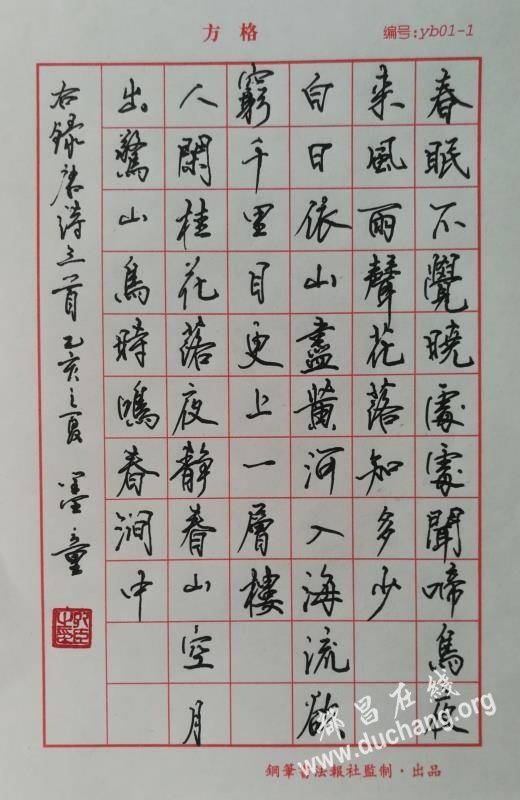 方 格
编号:yb01-1
春眠不覺曉處處聞啼鳥夜
来風雨聲花落知多少
白日依山盡黄河入海流欲
窮千里目更上一層樓
人閑桂花落夜静春山空月
出驚山鳥時鳴春澗中
右録唐詩三首 乙亥之夏 墨童
鋼筆書法報社監制·出品
都昌在线
www.duchang.org